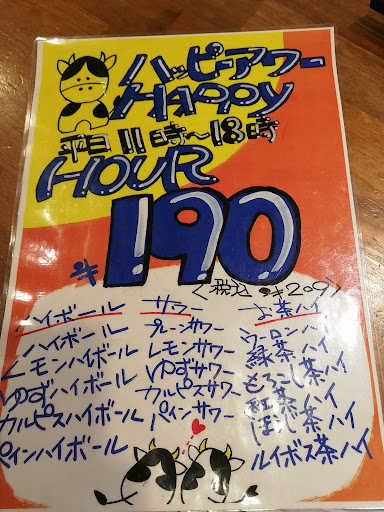 ハッピーアワー
HAPPY
平日 11時～18時
HOUR
¥190
<税込 ¥209>
ハイボール サワー お茶ハイ
ハイボール プレーンサワー ウーロンハイ
レモンハイボール レモンサワー 緑茶ハイ
ゆずハイボール ゆずサワー とうもろこし茶ハイ
カルピスハイボール カルピスサワー 紅茶ハイ
パインハイボール パインサワー ほうじ茶ハイ
ルイボス茶ハイ